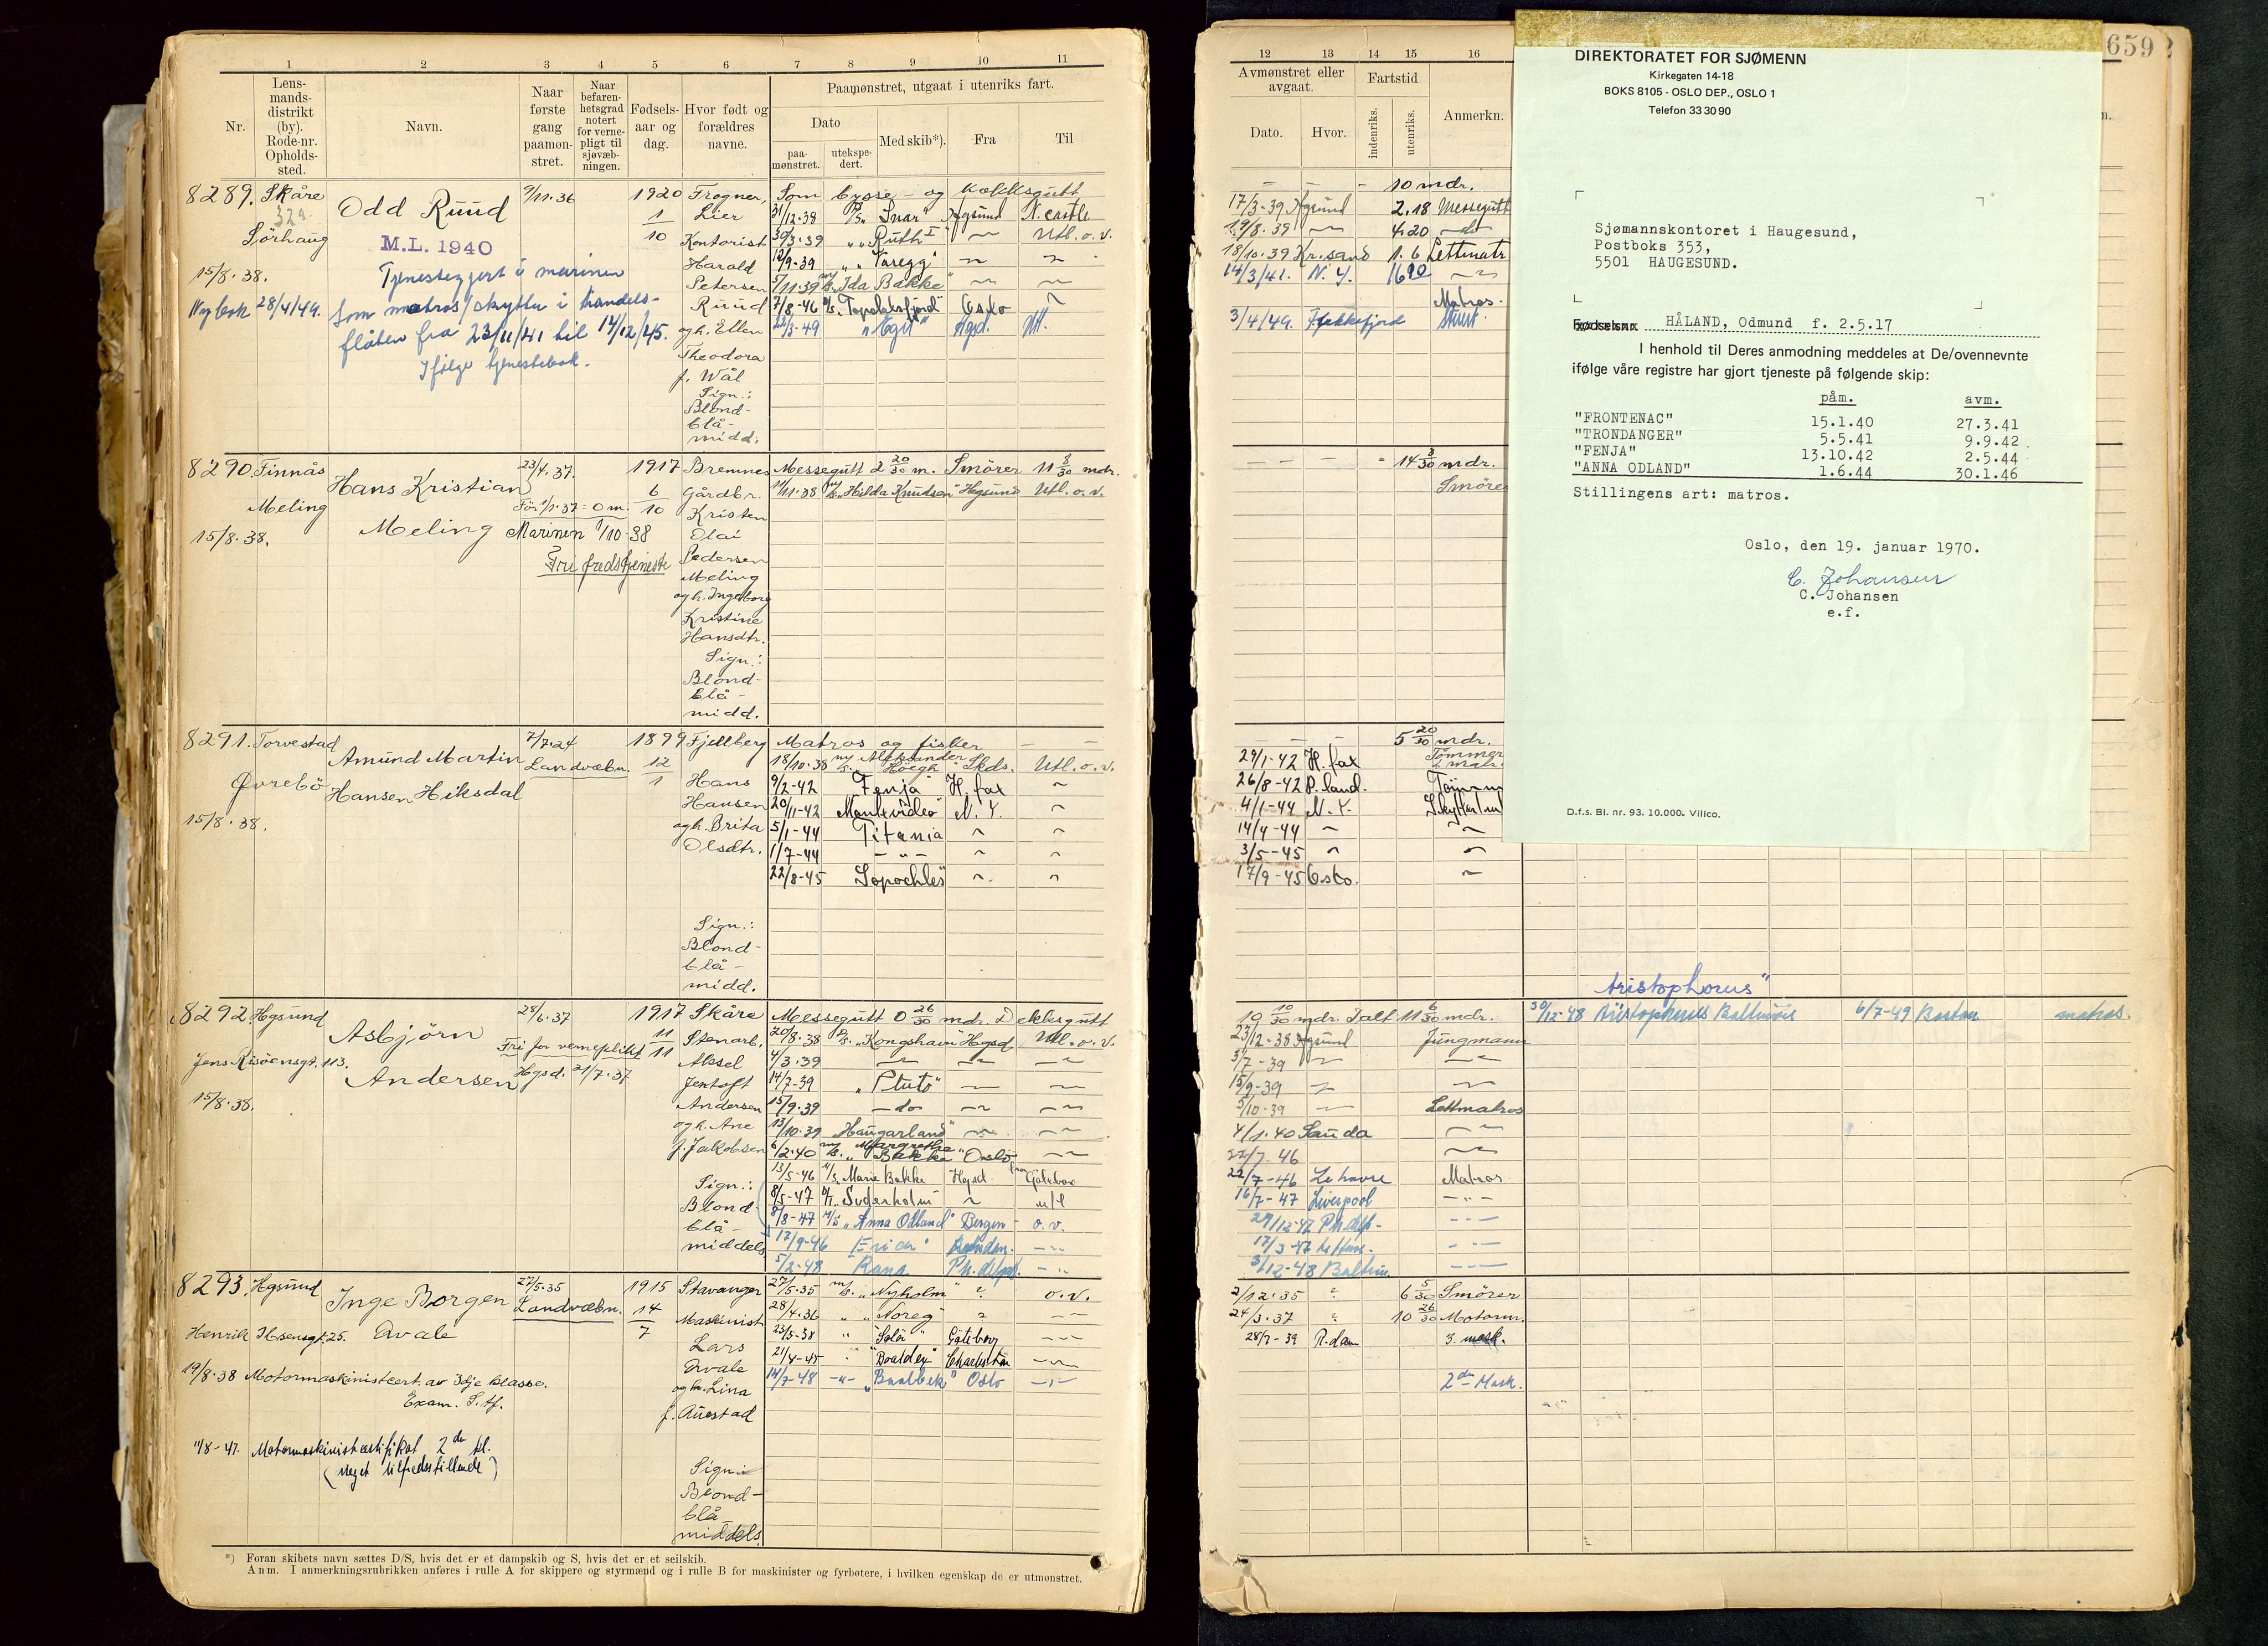 1 2 3 4 5 6 7 8 9 10 11
Nr.
Lens-
mands-
distrikt
(by).
Rode-nr.
Opholds-
sted.
Navn.
Naar
første
gang
paamøn-
stret.
Naar
befaren-
hetsgrad
notert
for verne-
pligt til
sjøvæb-
ningen.
Fødsels-
aar og
dag.
Hvor født og
forældres
navne.
Paamønstret, utgaat i utenriks fart.
Dato
paa-
mønstret.
utekspe-
dert.
Med skib*).
Fra
Til
8289. Skåre Odd Ruud 9/11.36 1920 Frogner, Som bysse- og kokksgutt
329. 1 Lier 31/12.38 D/S. „Snar" Hgsund N.castle
Sörhaug M.L. 1940 10 Kontorist 30/3.39 „ „Ruth I" Utl. o. v.
15/8.38. Tjenestegjort i marinen Harald 12/9.39 „ „Varegg"
Petersen 5/11.39 m/s. „Ida Bakke"
Nybok 28/4/49. Som matros/skytter i handels- Ruud 7/8-46 „Topdalsfjord" Oslo
flåten fra 23/11/41 til 14/12/45. og h. Ellen 22/3-49 „Egil" Hgsd. Utl.
Ifølge tjenestebok. Theodora
f. Wål
Sign.:
Blond-
blå-
midd.
8290. Finnås Hans Kristian 23/4.37. 1917 Bremnes Messegutt 2 20/30 m. Smörer 11 8/30 mdr.
Meling Før 1/1.37 = 0 m. 6 Gårdbr. 11/11.38 m/s. „Hilda Knudsen" Hgsund Utl. o. v.
Meling 10 Kristen
15/8.38. Marinen 1/10.38 Olai
Fri fredstjeneste Pedersen
Meling
og h. Ingeborg
Kristine
Hansdtr.
Sign.:
Blond-
blå-
midd.
8291. Torvestad Amund Martin 7/7.24 1899 Fjellberg Matros og fisker
Landvæbn. 12 18/10.38 m/s. „Aleksander Höegh" Skds. Utl. o. v.
Øvrebö Hansen Hiksdal 1 Hans 9/2-42 Fenja H.fax
Hansen 20/11-42 Montevideo N.Y.
15/8.38. og h. Brita 5/1-44 Titania
Olsdtr. 1/7-44 - " -
22/8-45
Sign.:
Blond-
blå-
midd.
8292. Hgsund Asbjörn 28/6.37 1917 Skåre Messegutt 0 26/30 mdr. Dekksgutt
Fri for verneplikt 11 Stenarb. 20/8.38 D/S. „Kongshavn" Hgsd Utl. o. v.
Jens Risöensgt. 113. Andersen Hgsd. 21/7.37 11 Aksel 4/3.39
Jentoft 14/7-39 „Pluto"
15/8.38. Andersen 15/9.39 -do-
og h. Ane 13/10.39 „Haugarland"
f. Jakobsen 6/2.40 m/s. „Margrethe Bakke" Oslo
13/5-46 M/S. Marie Bakke Hgsd.
Sign.: 8/5-47 „Suderholm"
Blond- 8/8-47 M/S „Anna Odland" Bergen o. v.
blå- 17/9-46
middels 5/2-48 Rana Ph.delph.
8293. Hgsund Inge Borgen 27/5.35 1915 Stavanger 27/5.35 m/s. „Nyholm" o. v.
Landvæbn. 14 Maskinist 28/4.36 „ „Noreg"
Henrik Ibsensgt. 25. Avale 7 Lars 23/5-38 „ "Solör" Göteborg
Avale 21/4-45 Charleston
19/8.38 Motormaskinistcert. av 3dje klasse. og h. Lina 14/7-48 „Baalbek" Oslo
Exam. S. tf. f. Auestad
11/8-47. Motormaskinistcertifikat 2den kl.
(Meget tilfredsstillende) Sign.:
Blond-
blå-
middels
*) Foran skibets navn sættes D/S, hvis det er et dampskib og S, hvis det er et seilskib.
Anm. I anmerkningsrubrikken anføres i rulle A for skippere og styrmænd og i rulle B for maskinister og fyrbøtere, i hvilken egenskap de er utmønstret.
12 13 14 15 16
659
Avmønstret eller
avgaat.
Dato. Hvor.
Fartstid
indenriks. utenriks.
Anmerkn.
10 mdr.
17/3-39 Hgsund 2.18 Messegutt
19/8.39 4.20 do
18/10.39 Kr.sand 1.6 Lettmatr
14/3/41. N.Y.
Matros.
3/4/49. Flekkefjord
14 3/30 mdr.
Smöre
5 20/30 mdr.
29/1-42 H.fax Tömmer
26/8-42
4/1-44 N.Y.
14/4-44
3/5-45
17/9-45 Oslo.
Aristophorus"
19 10/30 mdr. Ialt 11 6/30 mdr. 30/12-48 Baltimore 6/7-49 Boston matros.
23/12-38 Hgsund Jungmann
3/7-39
15/9-39
5/10.39 Lettmatros
4/1.40 Sauda
22/7.46
22/7-46 Le havre Matros
16/7-47 Liverpool
29/12-47 Ph.delp.
17/3-47
3/12-48 Baltim.
2/12.35 6 5/30 Smörer
24/3.37 10 26/30 Motorm.
28/7-39 R.dam 3. mask.
2den Mask.
DIREKTORATET FOR SJØMENN
Kirkegaten 14-18
BOKS 8105 - OSLO DEP., OSLO 1
Telefon 33 30 90
Sjømannskontoret i Haugesund,
Postboks 353,
5501 HAUGESUND.
HÅLAND, Odmund f. 2.5.17
I henhold til Deres anmodning meddeles at De/ovennevnte
ifølge våre registre har gjort tjeneste på følgende skip:
påm. avm.
"FRONTENAC" 15.1.40 27.3.41
"TRONDANGER" 5.5.41 9.9.42
"FENJA" 13.10.42 2.5.44
"ANNA ODLAND" 1.6.44 30.1.46
Stillingens art: matros.
Oslo, den 19. januar 1970.
C. Johansen
C. Johansen
e.f.
D.f.s. Bl. nr. 93. 10.000. Villco.